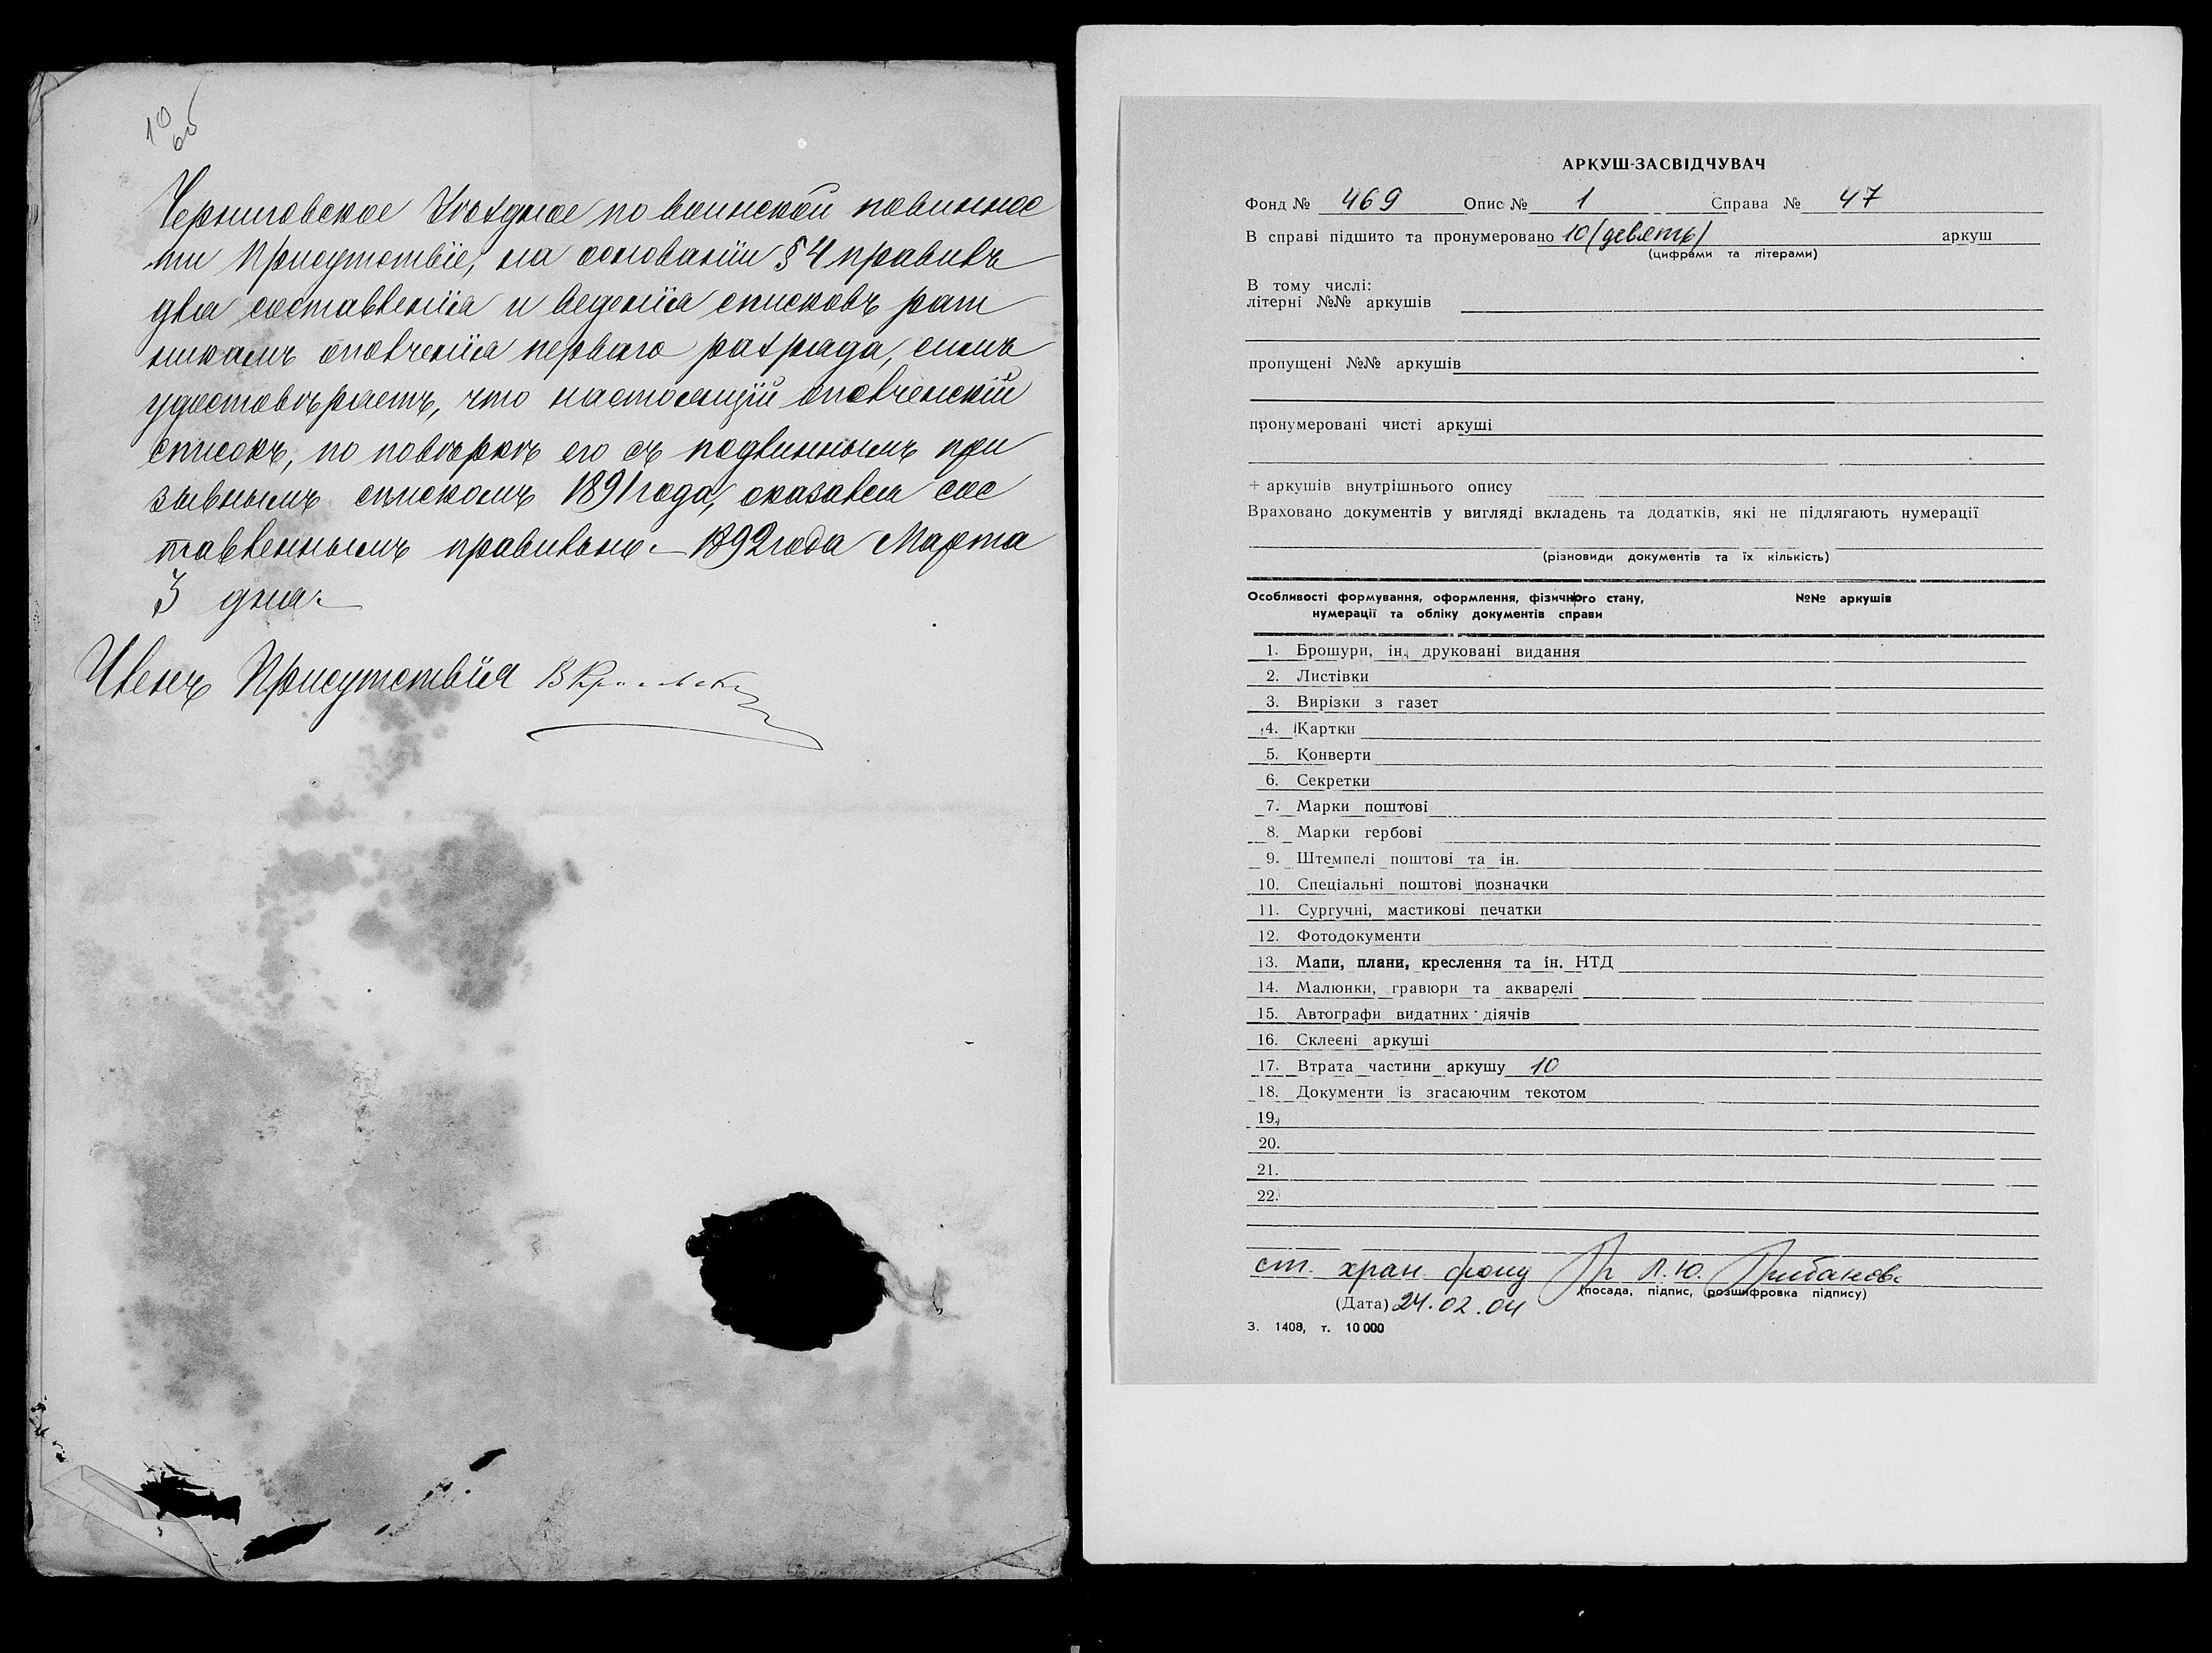 10
об
Черниговское Уѣздное по воинской повиннос
ти Присутствіе, на основаніи § 4 правилъ
для составленія и веденія списковъ рат
никамъ ополченія перваго разряда, симъ
удостовѣряетъ, что настоящій ополченскій
списокъ, по повѣркѣ его съ подлиннымъ при
зывнымъ спискомъ 1891 года, оказался сос
тавленнымъ правильно. 1892 года Марта
3 дня.
Членъ Присутствія
АРКУШ-ЗАСВІДЧУВАЧ
Фонд № 469 Опис № 1 Справа № 47
В справі підшито та пронумеровано 10 (девять) аркуш
(цифрами та літерами)
В тому числі:
літерні №№ аркушів
пропущені №№ аркушів
пронумеровані чисті аркуші
+ аркушів внутрішнього опису
Враховано документів у вигляді вкладень та додатків, які не підлягають нумерації
(різновиди документів та їх кількість)
Особливості формування, оформлення, фізичного стану, №№ аркушів
нумерації та обліку документів справи
1. Брошури, ін. друковані видання
2. Листівки
3. Вирізки з газет
4. Картки
5. Конверти
6. Секретки
7. Марки поштові
8. Марки гербові
9. Штемпелі поштові та ін.
10. Спеціальні поштові позначки
11. Сургучні, мастикові печатки
12. Фотодокументи
13. Мапи, плани, креслення та ін. НТД
14. Малюнки, гравюри та акварелі
15. Автографи видатних діячів
16. Склеєні аркуші
17. Втрата частини аркушу 10
18. Документи із згасаючим текотом
19.
20.
21.
22.
ст. хран. фонд Л.Ю.
(посада, підпис, розшифровка підпису)
(Дата) 24.02.04
З. 1408, т. 10 000